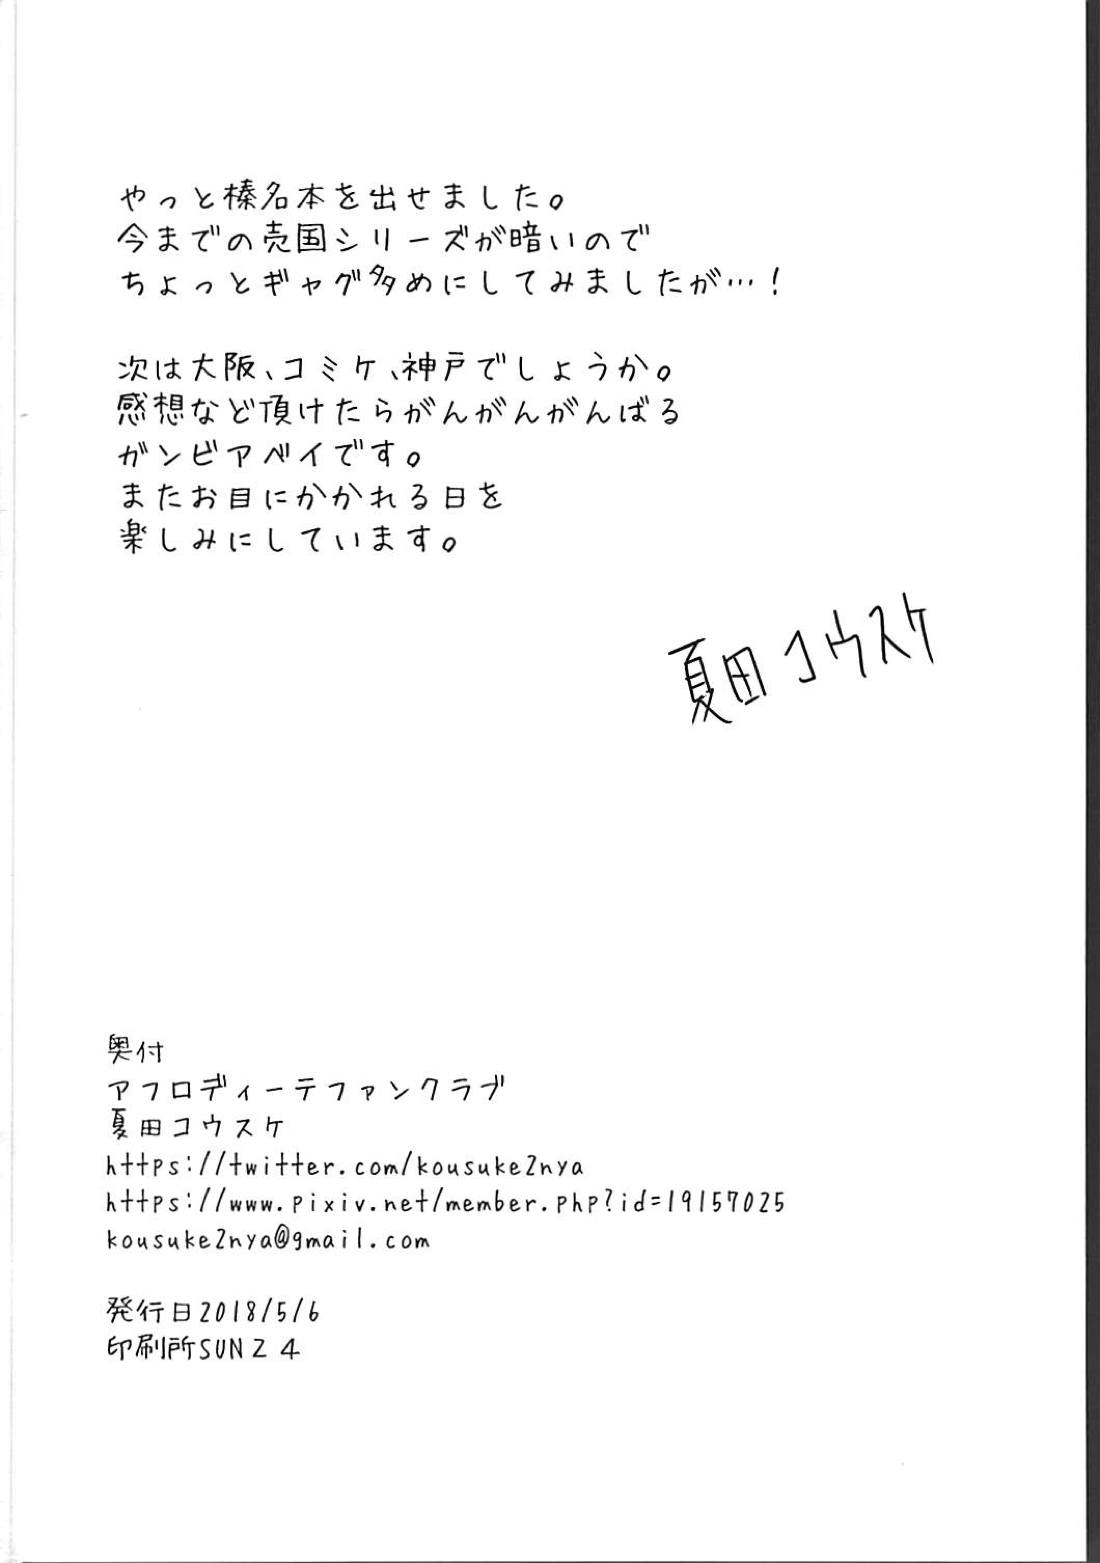 やっと榛名本を出せました。
今までの売国シリーズが暗いので
ちょっとギャグ多めにしてみましたが…！
次は大阪、コミケ、神戸でしょうか。
感想など頂けたらがんがんがんばる
ガンビアベイです。
またお目にかかれる日を
楽しみにしています。
夏田コウスケ
奥付
アフロディーテファンクラブ
夏田コウスケ
https://twitter.com/kousuke2nya
https://www.pixiv.net/member.php?id=19157025
kousuke2nya@gmail.com
発行日2018/5/6
印刷所SUNZ４